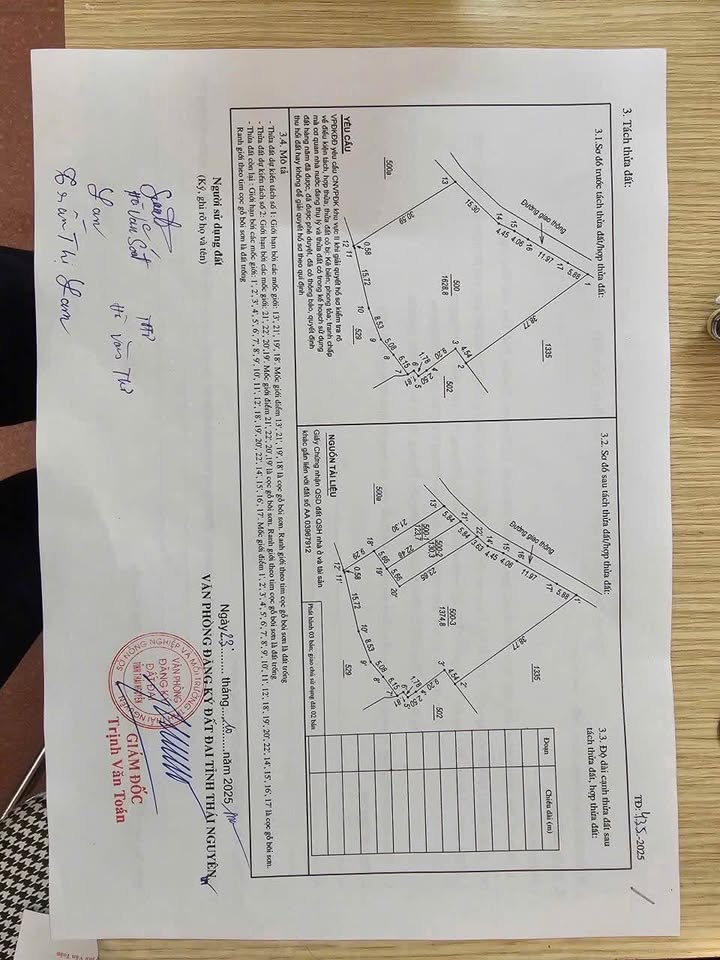 TĐ: 435.-2025
3. Tách thửa đất:
3.1. Sơ đồ trước tách thửa đất/hợp thửa đất:
Đường giao thông
1
5.86
17
11.97
16
4.06
15
4.45
14
15.30
13
500a
500
1628,8
1335
2
4.54
3
502
1.78
6.15
7
8
5.08
9
8.53
10
529
15.72
0.58
11
12
YÊU CẦU
VPĐKĐĐ yêu cầu CNVPĐK khu vực II khi giải quyết hồ sơ kiểm tra rõ
về điều kiện tách, hợp thửa; thửa đất có bị: Kê biên; phong tỏa; tranh chấp
mà cơ quan nhà nước đang thụ lý và thửa đất có trong kế hoạch sử dụng
đất hàng năm đã được, đã được phê duyệt, đã có thông báo, quyết định
thu hồi đất hay không để giải quyết hồ sơ theo qui định
3.2. Sơ đồ sau tách thửa đất/hợp thửa đất:
Đường giao thông
1'
5.86
17'
11.97
16'
4.06
15'
4.45
14'
3.63
22'
5.84
21'
5.84
13'
500a
500-1
500-2
500-3
1374,8
1335
18'
5.66
19'
5.66
20'
2'
4.54
3'
502
1.78
6.15
7'
8'
5.08
9'
8.53
10'
529
15.72
0.58
11'
12'
NGUỒN TÀI LIỆU
Giấy Chứng nhận QSD đất QSH nhà ở và tài sản
khác gắn liền với đất số AA 03967912
Phát hành 03 bản; giao chủ sử dụng đất 02 bản
3.3. Độ dài cạnh thửa đất sau
tách thửa đất, hợp thửa đất:
Đoạn
Chiều dài (m)
3.4. Mô tả
- Thửa đất dự kiến tách số 1: Giới hạn bởi các mốc giới: 13', 21', 19', 18'. Mốc giới điểm 13', 21', 19', 18' là cọc gỗ bôi sơn. Ranh giới theo tim cọc gỗ bôi sơn là đất trống
- Thửa đất dự kiến tách số 2: Giới hạn bởi các mốc giới: 21', 22', 20', 19'. Mốc giới điểm 21', 22', 20', 19' là cọc gỗ bôi sơn. Ranh giới theo tim cọc gỗ bôi sơn là đất trống
- Thửa đất còn lại : Giới hạn bởi các mốc giới: 1', 2', 3', 4', 5', 6', 7', 8', 9', 10', 11', 12', 18', 19', 20', 22', 14', 15', 16', 17'. Mốc giới điểm 1', 2', 3', 4', 5', 6', 7', 8', 9', 10', 11', 12', 18', 19', 20', 22', 14', 15', 16', 17' là cọc gỗ bôi sơn.
Ranh giới theo tim cọc gỗ bôi sơn là đất trống
Người sử dụng đất
(Ký, ghi rõ họ và tên)
Lan
Trần Thị Lan
Hồ Văn Thơ
Ngày 23 tháng 10 năm 2025
VĂN PHÒNG ĐĂNG KÝ ĐẤT ĐAI TỈNH THÁI NGUYÊN
GIÁM ĐỐC
Trịnh Văn Toán
SỞ NÔNG NGHIỆP VÀ MÔI TRƯỜNG
VĂN PHÒNG
ĐĂNG KÝ
ĐẤT ĐAI